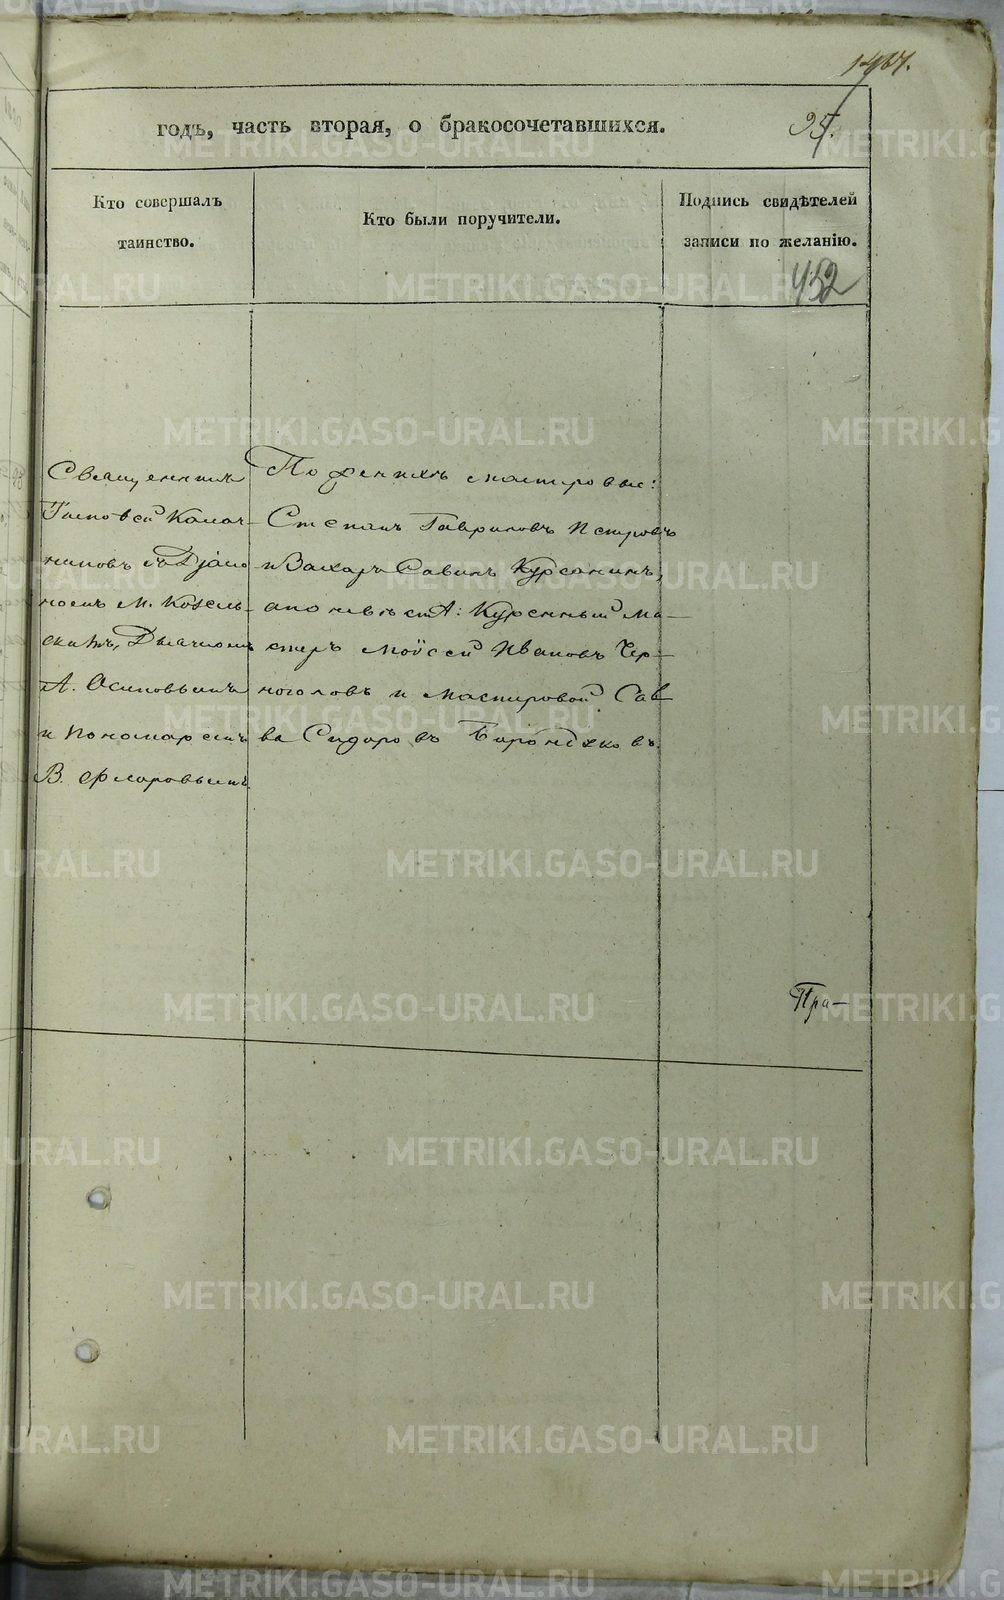 1467.
годъ, часть вторая, о бракосочетавшихся.
95.
Кто совершалъ
таинство.
Кто были поручители.
Подпись свидѣтелей
записи по желанію.
452
Священникъ
съ Діако
номъ М.
Дьячкомъ
А. Осиповымъ
и Пономаремъ
В. Флоровымъ
По женихѣ мастировые:
Степанъ Гавриловъ Петровъ
и Захаръ Савинъ Курсанинъ,
а по невѣстѣ: Куренный ма-
стеръ Моѵсей Ивановъ Чер-
ноголовъ и мастировой Сав
ва Сидоровъ
Пра-
METRIKI.GASO-URAL.RU